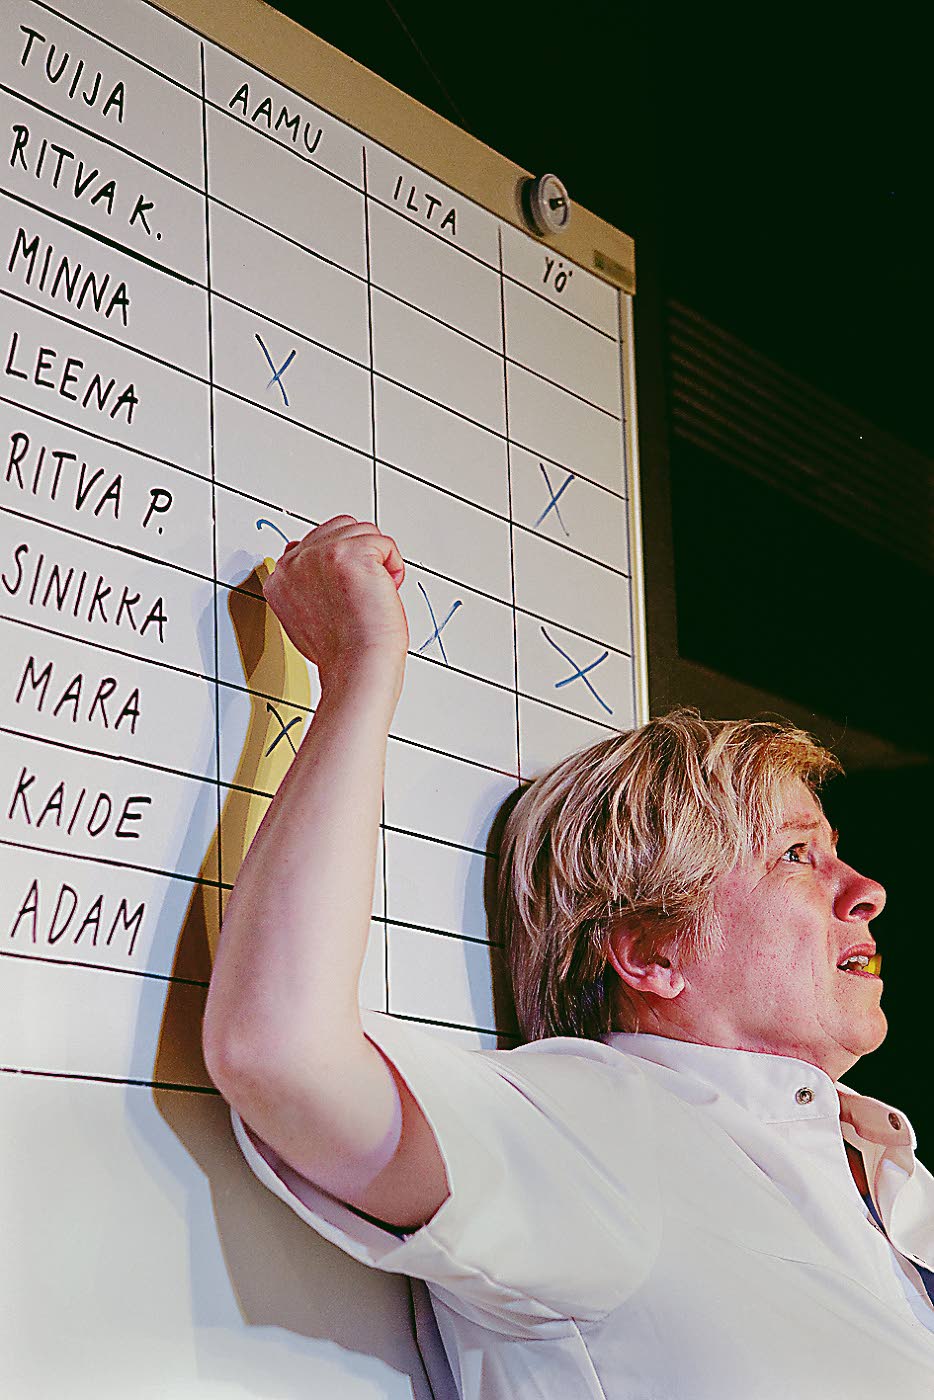 AAMU ILTA YÖ
TUIJA
RITVA K.
MINNA X X
LEENA
RITVA P. X X
SINIKKA
MARA X
KAIDE
ADAM